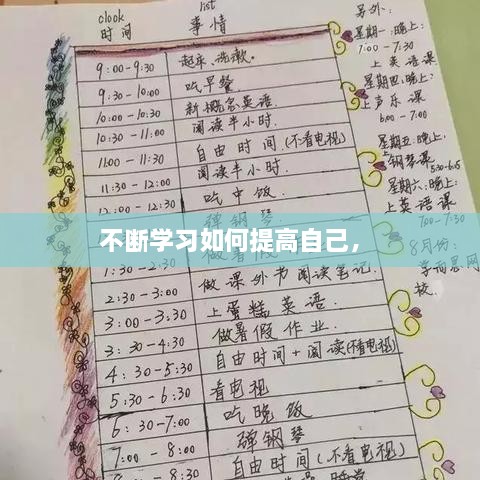 clook list
时间 事情
9:00-9:30 起床、洗漱。
9:30-10:00 吃早餐
10:00-10:30 新概念英语.
10:30-11:00 阅读半小时.
11:00-11:30 自由时间(不看电视)
11:30-12:00 阅读半小时.
吃中饭.
弹钢琴
不断学习如何提高自己，
做课外书阅读笔记
2:30-3:00 上蛋糕英语.
3:00-3:30 做暑假作业.
3:30-4:30 自由时间+阅读(不看电视)
4:30-5:30 看电视
5:30-6:30 吃晚饭
6:30-7:00 弹钢琴
7:00-8:00 自由时间(不看电视)
另外:
星期一:晚上:
7:00-7:30
上英语课
星期四:晚上:
上声乐课
6:00-7:00
星期五:晚上:
钢琴课
星期六:晚上:
上英语课
8月份:
学而思网
校.